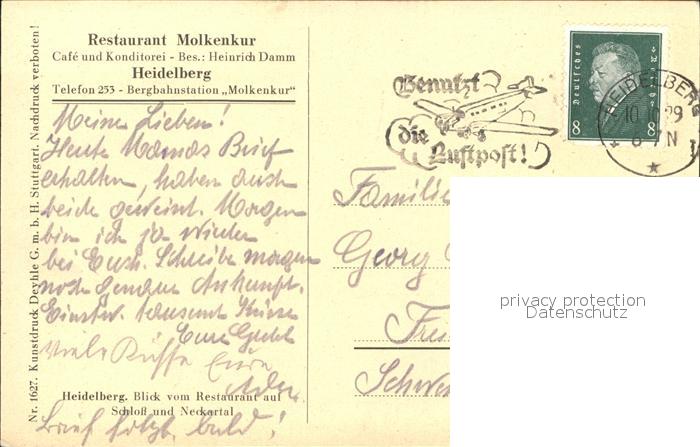 Restaurant Molkenkur
Café und Konditorei - Bes.: Heinrich Damm
Heidelberg
Telefon 253 - Bergbahnstation „Molkenkur"
Meine Lieben!
Heute Mamas Brief
erhalten, haben auch
beide geweint. Morgen
bin ich ja wieder
bei Euch. Schreibe morgen
noch genaue Ankunft.
Einstw. tausend Küsse
Eure
Viele Küsse Eure
Heidelberg. Blick vom Restaurant auf
Schloß und Neckartal
Brief folgt bald!
Nr. 1627. Kunstdruck Deyhle G. m. b. H. Stuttgart. Nachdruck verboten!
Benutzt
die
Luftpost!
Deutsches Reich
8 8
HEIDELBERG
29
Familie
Georg
privacy protection
Datenschutz